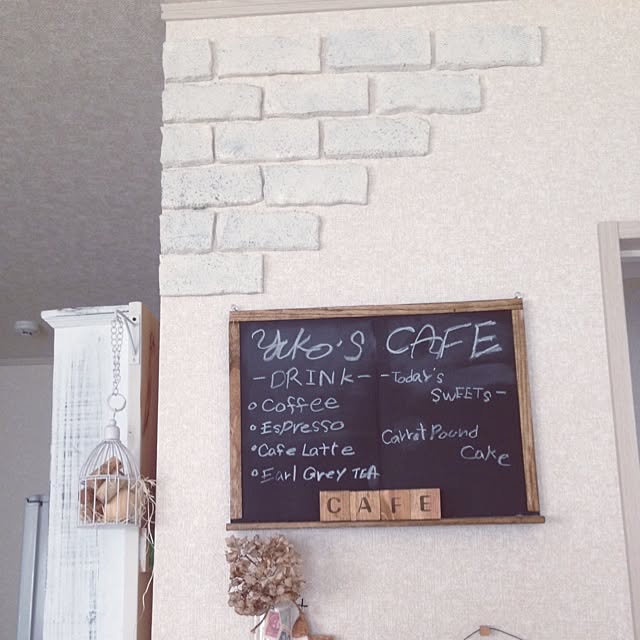 Yuko's CAFE
-DRINK-
Coffee
Espresso
Cafe Latte
Earl Grey TEA
-Today's
SWEETS-
Carrot Pound
Cake
CAFE